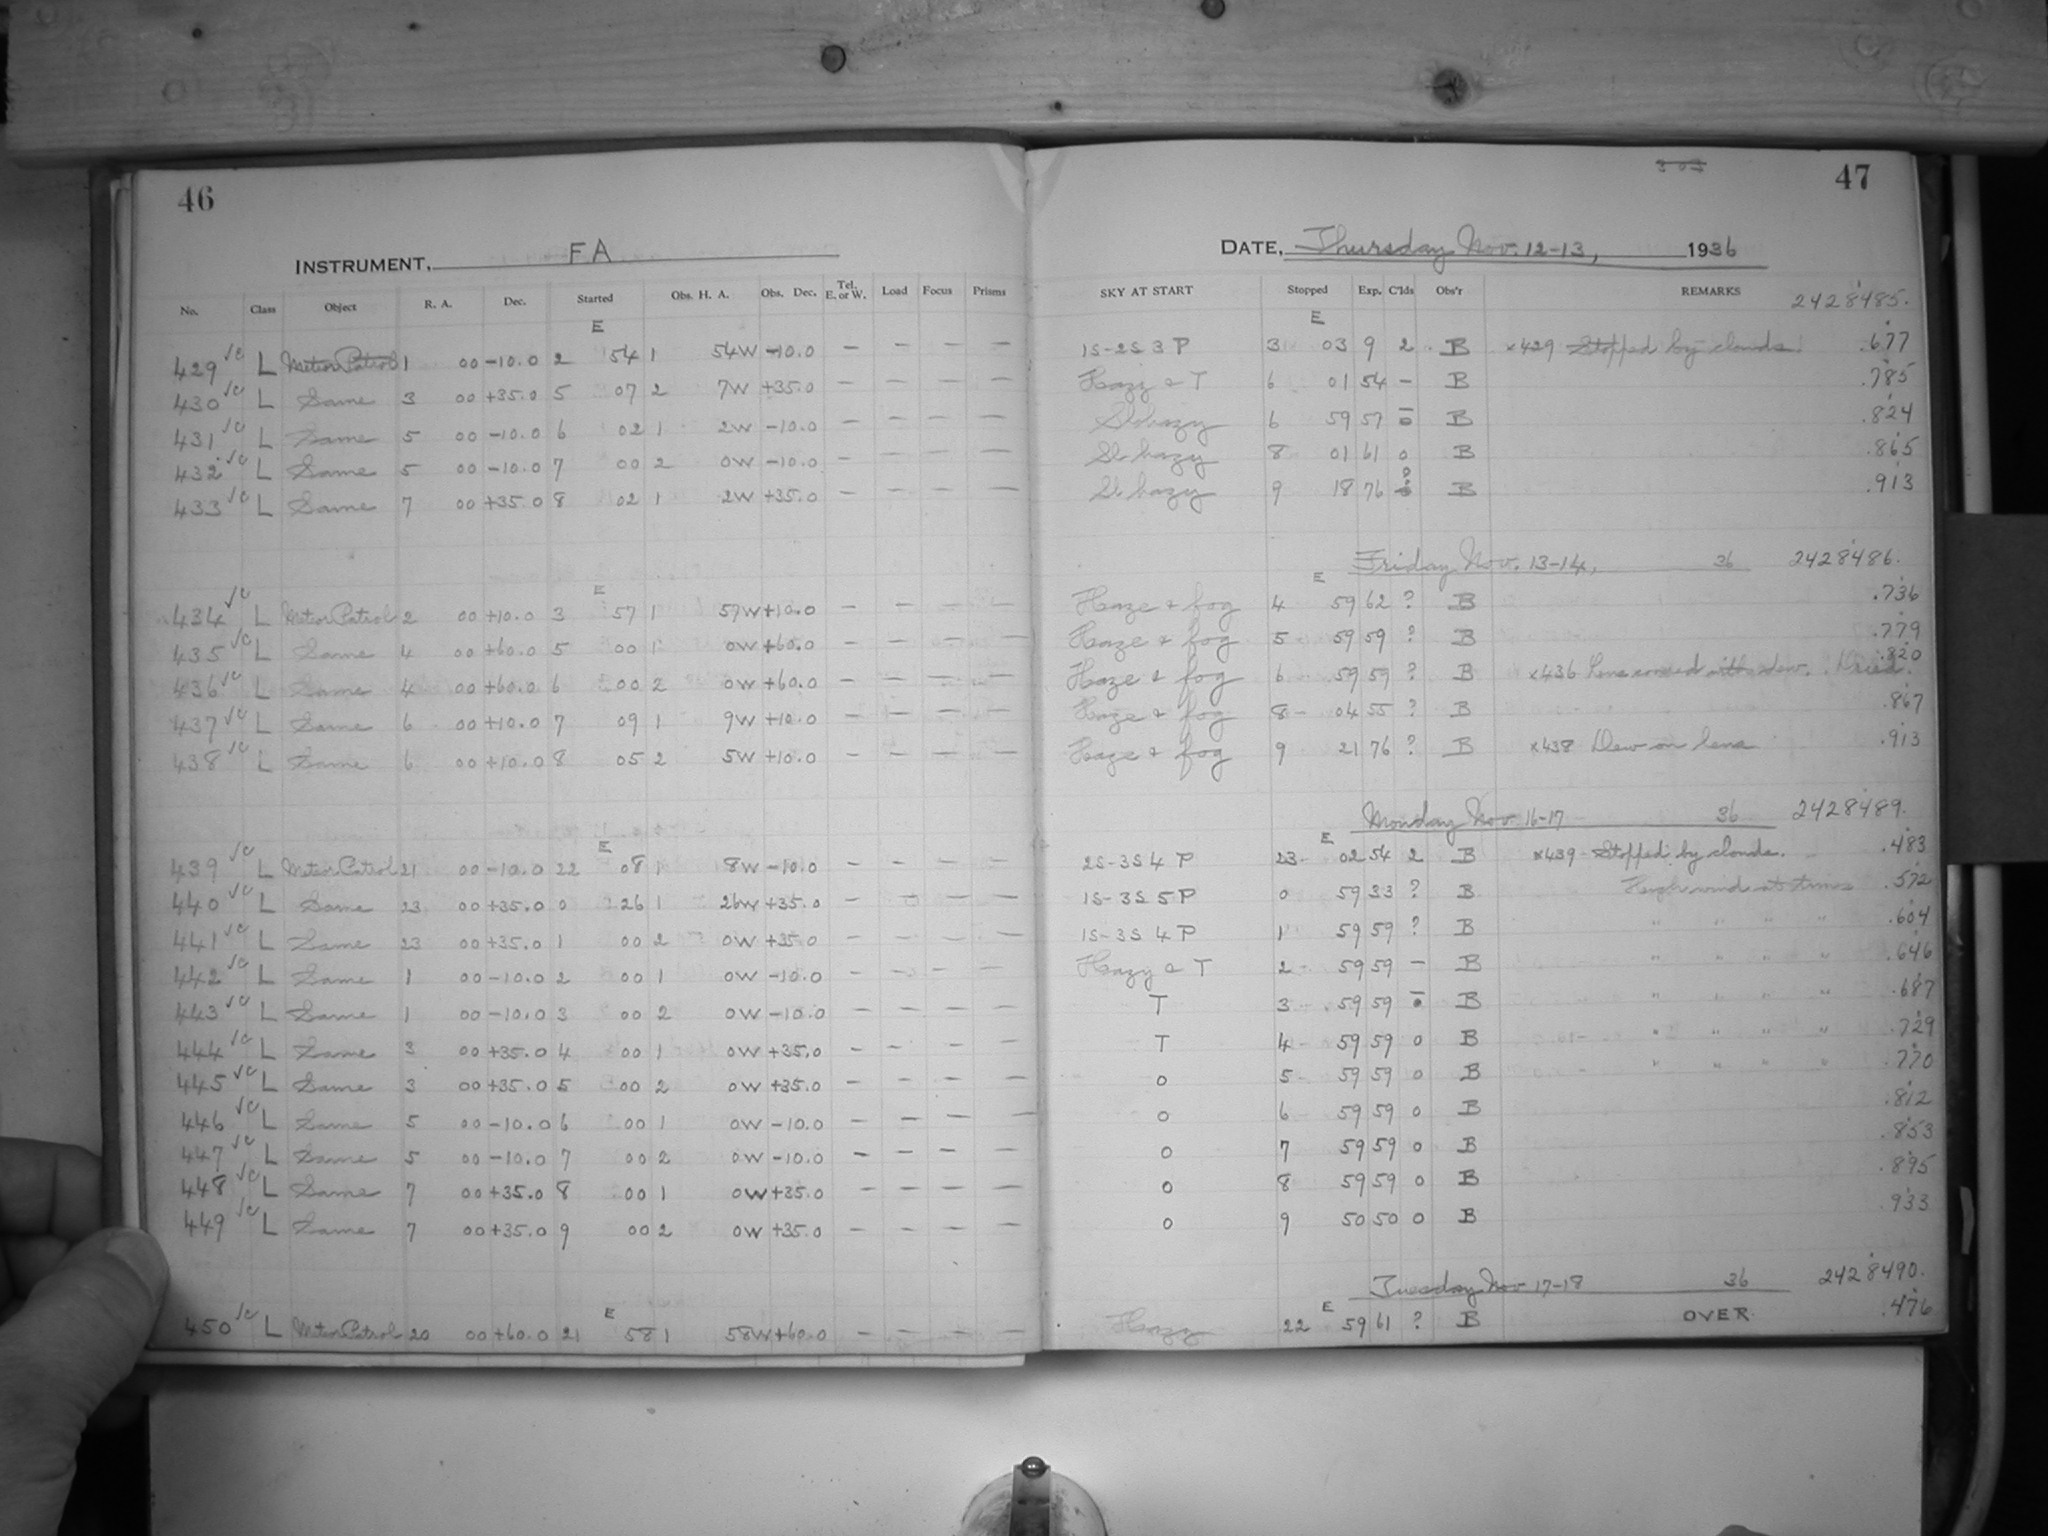 46
INSTRUMENT, FA
No. Class Object R. A. Dec. Started Obs. H. A. Obs. Dec. Tel. E. or W. Load Focus Prisms
E
429 L Meteor Patrol 1 00 -10.0 2 54 1 54W -10.0 — — — —
430 L Same 3 00 +35.0 5 07 2 7W +35.0 — — — —
431 L Same 5 00 -10.0 6 02 1 2W -10.0 — — — —
432 L Same 5 00 -10.0 7 00 2 0W -10.0 — — — —
433 L Same 7 00 +35.0 8 02 1 2W +35.0 — — — —
E
434 L Meteor Patrol 2 00 +10.0 3 57 1 57W +10.0 — — — —
435 L Same 4 00 +60.0 5 00 1 0W +60.0 — — — —
436 L Same 4 00 +60.0 6 00 2 0W +60.0 — — — —
437 L Same 6 00 +10.0 7 09 1 9W +10.0 — — — —
438 L Same 6 00 +10.0 8 05 2 5W +10.0 — — — —
E
439 L Meteor Patrol 21 00 -10.0 22 08 1 8W -10.0 — — — —
440 L Same 23 00 +35.0 0 26 1 26W +35.0 — — — —
441 L Same 23 00 +35.0 1 00 2 0W +35.0 — — — —
442 L Same 1 00 -10.0 2 00 1 0W -10.0 — — — —
443 L Same 1 00 -10.0 3 00 2 0W -10.0 — — — —
444 L Same 3 00 +35.0 4 00 1 0W +35.0 — — — —
445 L Same 3 00 +35.0 5 00 2 0W +35.0 — — — —
446 L Same 5 00 -10.0 6 00 1 0W -10.0 — — — —
447 L Same 5 00 -10.0 7 00 2 0W -10.0 — — — —
448 L Same 7 00 +35.0 8 00 1 0W +35.0 — — — —
449 L Same 7 00 +35.0 9 00 2 0W +35.0 — — — —
E
450 L Meteor Patrol 20 00 +60.0 21 58 1 58W +60.0 — — — —
47
DATE, Thursday Nov. 12-13, 1936
SKY AT START Stopped Exp. C'lds Obs'r REMARKS 2428485.
E
1S-2S 3 P 3 03 9 2 B x429 Stopped by clouds .677
Hazy & T 6 01 54 — B .785
Sl hazy 6 59 57 0 B .824
Sl hazy 8 01 61 0 B .865
Sl hazy 9 18 76 ? B .913
Friday Nov. 13-14, 36 2428486.
E
Haze & fog 4 59 62 ? B .736
Haze & fog 5 59 59 ? B .779
Haze & fog 6 59 59 ? B x436 Lens covered with dew. Dried. .820
Haze & fog 8 04 55 ? B .867
Haze & fog 9 21 76 ? B x438 Dew on lens .913
Monday Nov 16-17 36 2428489.
E
2S-3S 4 P 23 02 54 2 B x439 Stopped by clouds. .483
1S-3S 5 P 0 59 33 ? B High wind at times .572
1S-3S 4 P 1 59 59 ? B " " " " .604
Hazy & T 2 59 59 — B " " " " .646
T 3 59 59 0 B " " " " .687
T 4 59 59 0 B " " " " .729
0 5 59 59 0 B " " " " .770
0 6 59 59 0 B .812
0 7 59 59 0 B .853
0 8 59 59 0 B .895
0 9 50 50 0 B .933
Tuesday Nov 17-18 36 2428490.
E
Hazy 22 59 61 ? B OVER .476